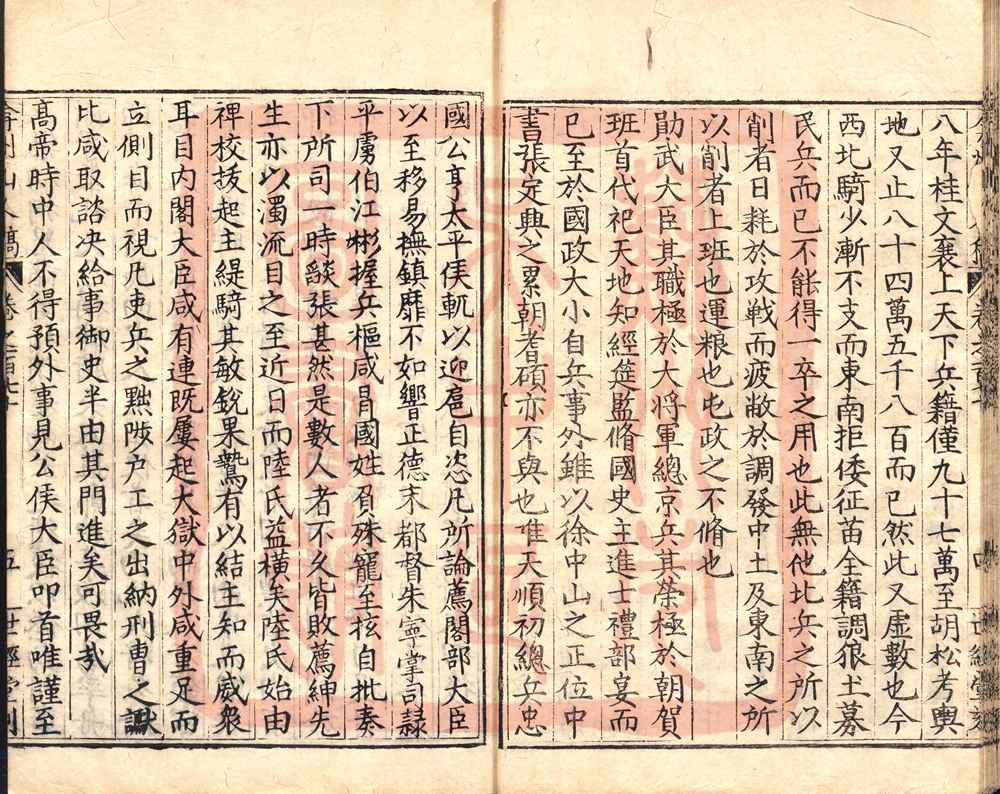 八年桂文襄上天下兵籍僅九十七萬至胡松考輿
地又止八十四萬五千八百而已然此又虛數也今
西北騎少漸不支而東南拒倭征苗全籍調狼土募
民兵而已不能得一卒之用也此無他北兵之所以
削者日耗於攻戰而疲敝於調發中土及東南之所
以削者上班也運粮也屯政之不脩也
勛武大臣其職極於大將軍總京兵其榮極於朝賀
班首代祀天地知經筵監脩國史主進士禮部宴而
已至於國政大小自兵事外雖以徐中山之正位中
書張定興之累朝耆碩亦不與也惟天順初總兵忠
國公亨太平侯軏以迎扈自恣凡所論薦閣部大臣
以至移易撫鎮靡不如響正德末都督朱寧掌司隸
平虜伯江彬握兵樞咸冐國姓負殊寵至挍自批奏
下所司一時燄張甚然是數人者不久皆敗薦紳先
生亦以濁流目之至近日而陸氏益橫矣陸氏始由
裨校拔起主緹騎其敏銳果鷙有以結主知而威衆
耳目內閣大臣咸有連既屢起大獄中外咸重足而
立側目而視凡吏兵之黜陟户工之出納刑曹之讞
比咸取諮决給事御史半由其門進矣可畏㢤
高帝時中人不得預外事見公侯大臣叩首唯謹至
弇州山人稿 卷之百七十 五 世經堂刻